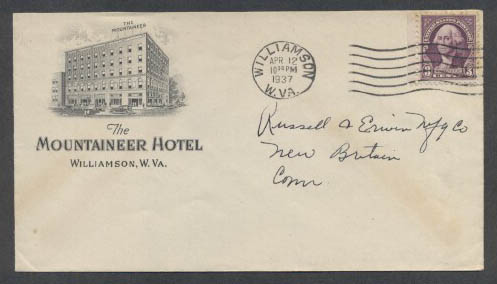 THE
MOUNTAINEER
The
MOUNTAINEER HOTEL
WILLIAMSON, W. VA.
WILLIAMSON
APR 12
1937
W. VA.
3 3
Russell & Erwin Mfg Co
New Britain
Conn.